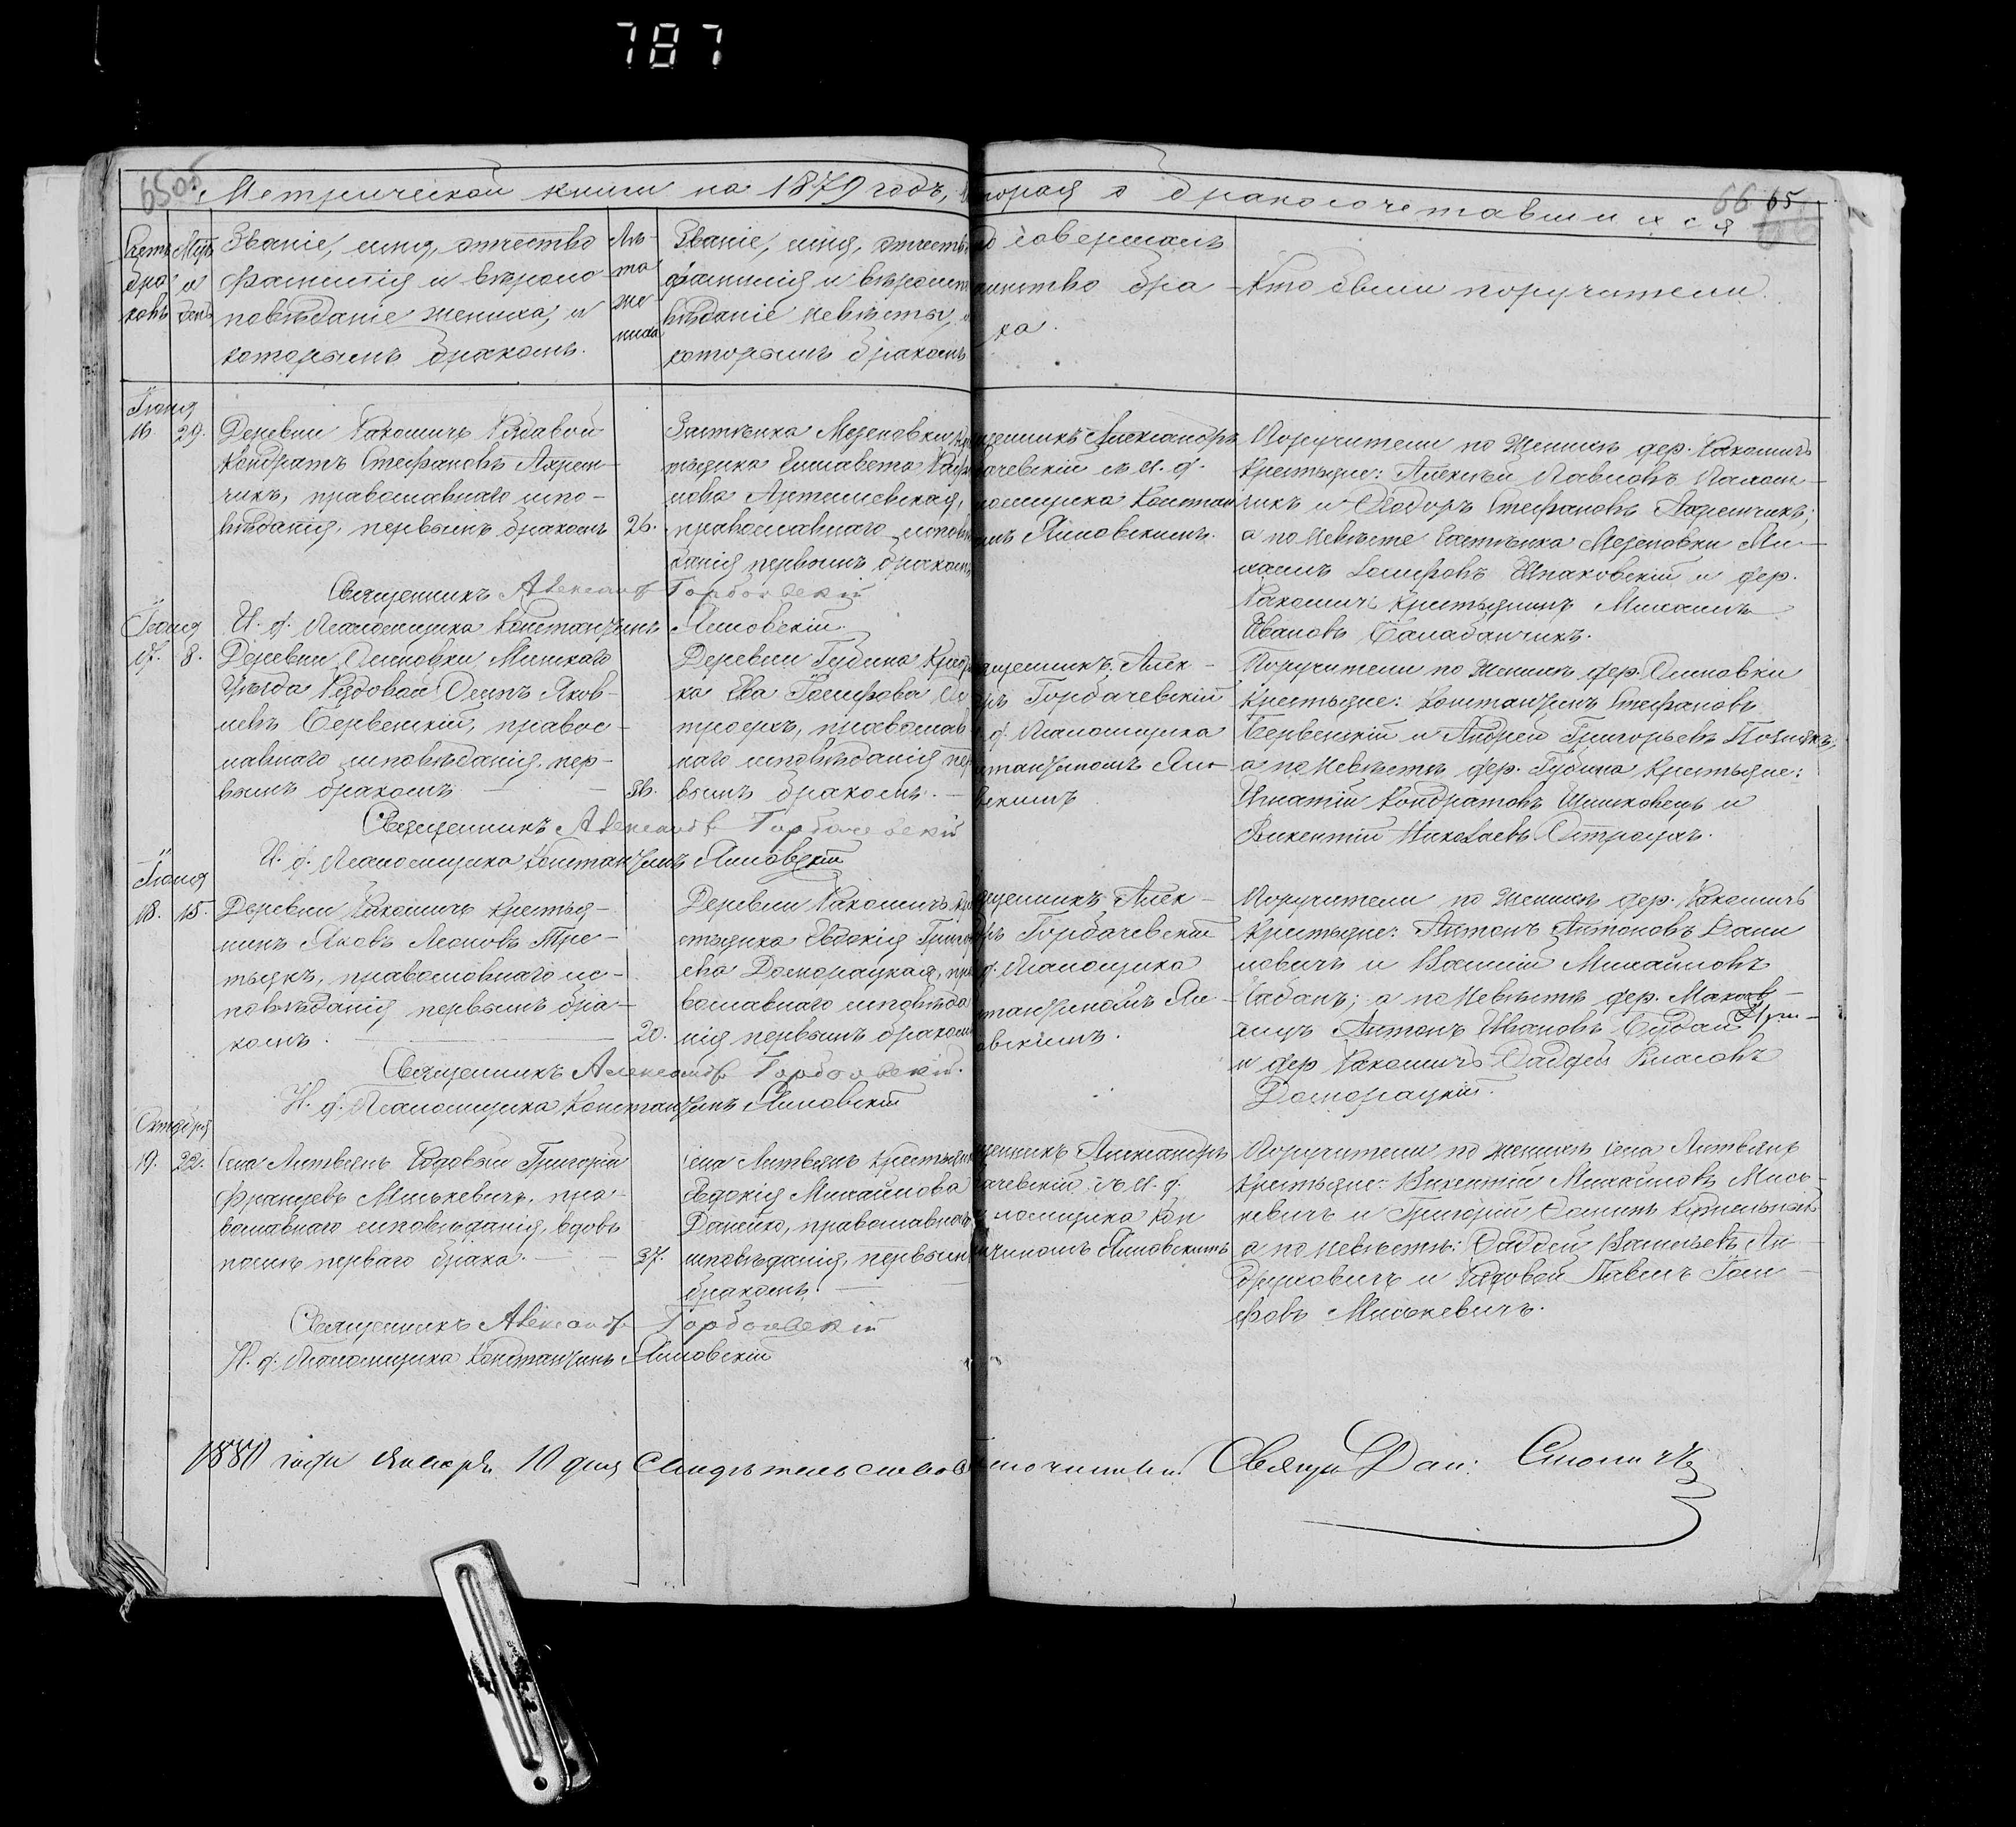 787
650б.
Метрической книги на 1879 годъ, торая о бракосочетавшихся
66 65
Счетъ браковъ
Мцъ и день
Званіе, имя, отчество
фамилія и вѣроис
повѣданіе жениха, и
которымъ бракомъ.
Лѣ-
та
же
ниха
Званіе, имя, отчеств
фамилія и вѣроисп
вѣданіе невѣсты, и
которымъ бракомъ
о совершалъ
аинство бра-
ка.
Кто были поручители.
Іюня
16. 29.
Деревни Какоричъ Рядовой
Кондратъ Стефановъ Ахрем-
чикъ, православнаго испо-
вѣданія, первымъ бракомъ 26.
Застѣнка Мезеновки
тьянка Елисавета
нова Артишевская,
православнаго исповѣ
данія первымъ бракомъ
щенникъ Александръ
бачевскій съ И. ф.
ломщика Констан
мъ Ялловскимъ.
Поручители по Женихѣ дер. Какоричъ
Крестьяне: Алексѣй Павловъ
чикъ и Ѳеодоръ Стефановъ Ахремчикъ;
а по Невѣсте Застѣнка Мезеновки Ми-
хаилъ Іосифовъ и дер.
Какоричъ Крестьянинъ Михаилъ
Ивановъ Балабанчикъ.
Священникъ Александръ Горбачевскій
И. ф. Псаломщика Константинъ Ялловскій.
Іюля
17. 8.
Деревни Осиновки Минскаго
Уѣзда Рядовой Осипъ Яков-
левъ Бервенскій, правос-
лавнаго исповѣданія, пер-
вымъ бракомъ — 36.
Деревни Губина Крестья
ка Ева Іосифова Ос
троухъ, православ
наго исповѣданія пер
вымъ бракомъ. —
ященникъ Алек-
ръ Горбачевскій
ф. Псаломщика
стантиномъ Ял-
вскимъ
Поручители по Женихѣ дер. Осиновки
Крестьяне: Константинъ Стефановъ
Бервенскій и Андрей Григорьевъ Познякъ;
а по Невѣстѣ дер. Губина Крестьяне:
Игнатій Кондратовъ Шишковецъ и
Викентій Николаевъ Остроухъ.
Священникъ Александръ Горбачевскій
И. ф. Псаломщика Константинъ Ялловскій
Іюля
18. 15.
Деревни Какоричъ Крестья-
нинъ Яковъ Леоновъ Тре-
тьякъ, православнаго ис-
повѣданія первымъ бра-
комъ. — 20.
Деревни Какоричъ Кре
стьянка Евдокія Григо
ева Доморацкая, пра
вославнаго исповѣда
нія первымъ бракомъ
щенникъ Алек-
ръ Горбачевскій
ф. Псаломщика
стантиномъ Ял-
овскимъ.
Поручители по Женихѣ дер. Какоричъ
Крестьяне: Антонъ Антоновъ Дани
ловичъ и Василій Михайловъ
Чабанъ; а по Невѣстѣ дер.
Антонъ Ивановъ
и дер Какоричъ Ѳаддей Власовъ
Доморацкій.
Священникъ Александръ Горбачевскій.
И. ф. Псаломщика Константинъ Ялловскій
Октября
19. 22.
Села Литвянъ Рядовый Григорій
Францевъ Миськевичъ, пра-
вославнаго исповѣданія, вдовъ
послѣ перваго брака. — 37.
Села Литвянъ Крестьянк
Явдокія Михайлова
Данейко, православнаго
исповѣданія, первымъ
бракомъ. —
щенникъ Александръ
бачевскій съ И. ф.
ломщика Кон
нтиномъ Ялловскимъ
Поручители по Женихѣ села Литвянъ
Крестьяне: Викентій Михайловъ Мись-
кевичъ и Григорій Ѳоминъ
а по невѣстѣ: Ѳаддей Васильевъ Ан-
друковичъ и Рядовой Павелъ Іоси-
фовъ Миськевичъ.
Священникъ Александръ Горбачевскій
И. ф. Псаломщика Константинъ Ялловскій
1880 года Января 10 дня Свидѣтельствовалъ